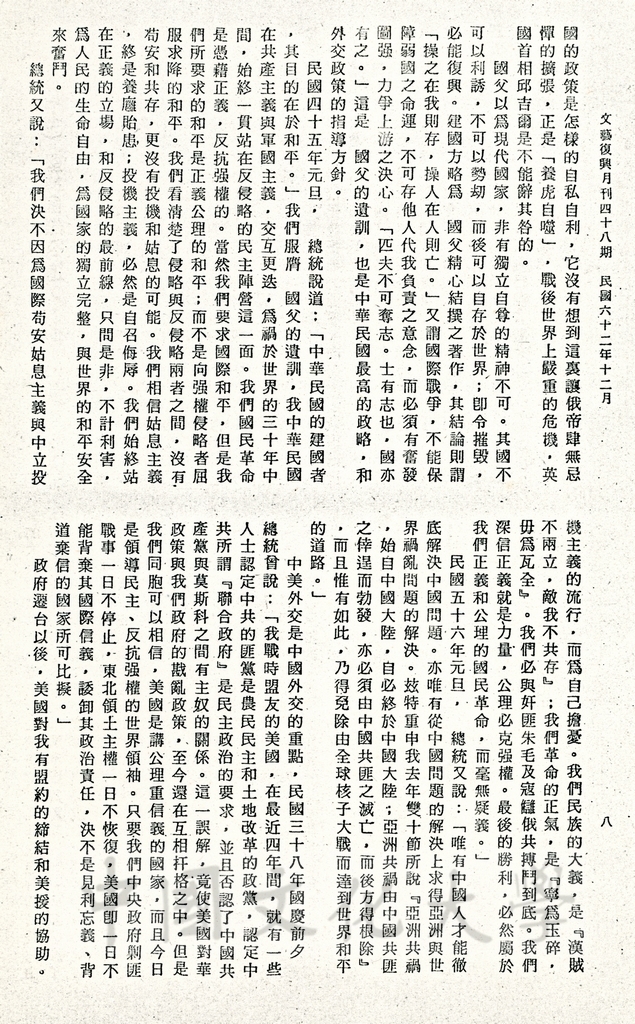 文藝復興月刊四十八期　民國六十二年十二月
國的政策是怎樣的自私自利，它沒有想到這裏讓俄帝肆無忌
憚的擴張，正是「養虎自噬」，戰後世界上嚴重的危機，英
國首相邱吉爾是不能辭其咎的。
國父以爲現代國家，非有獨立自尊的精神不可。其國不
可以利誘，不可以勢劫，而後可以自存於世界；卽令摧毀，
必能復興。建國方略爲　國父精心結撰之著作，其結論則謂
「操之在我則存，操人在人則亡。」又謂國際戰爭，不能保
障弱國之命運，不可存他人代我負責之意念，而必須有奮發
圖强，力爭上游之決心。「匹夫不可奪志。士有志也，國亦
有之。」這是　國父的遺訓，也是中華民國最高的政略，和
外交政策的指導方針。
民國四十五年元旦，　總統說道：「中華民國的建國者
，其目的在於和平。」我們服膺　國父的遺訓，我中華民國
在共產主義與軍國主義，交互更迭，爲禍於世界的三十年中
間，始終一貫站在反侵略的民主陣營這一面。我們國民革命
是憑藉正義，反抗强權的。當然我們要求國際和平，但是我
們所要求的和平是正義公理的和平；而不是向强權侵略者屈
服求降的和平。我們看清楚了侵略與反侵略兩者之間，沒有
苟安和共存，更沒有投機和姑息的可能。我們相信姑息主義
，終是養癰貽患；投機主義，必然是自召侮辱。我們始終站
在正義的立場，和反侵略的最前線，只問是非，不計利害，
爲人民的生命自由，爲國家的獨立完整，與世界的和平安全
來奮鬥。
總統又說：「我們決不因爲國際苟安姑息主義與中立投
機主義的流行，而爲自己擔憂。我們民族的大義，是『漢賊
不兩立，敵我不共存』；我們革命的正氣，是『寧爲玉碎，
毋爲瓦全』。我們必與奸匪朱毛及寇讎俄共搏鬥到底。我們
深信正義就是力量，公理必克强權。最後的勝利，必然屬於
我們正義和公理的國民革命，而毫無疑義。」
民國五十六年元旦，　總統又說：「唯有中國人才能徹
底解決中國問題。亦唯有從中國問題的解決上求得亞洲與世
界禍亂問題的解決。玆特重申我去年雙十節所說『亞洲共禍
，始自中國大陸，自必終於中國大陸；亞洲共禍由中國共匪
之倖逞而勃發，亦必須由中國共匪之滅亡，而後方得根除』
，而且惟有如此，乃得免除由全球核子大戰而達到世界和平
的道路。」
中美外交是中國外交的重點，民國三十八年國慶前夕
總統曾說：「我戰時盟友的美國，在最近四年間，就有一些
人士認定中共的匪黨是農民民主和土地改革的政黨，認定中
共所謂『聯合政府』是民主政治的要求，並且否認了中國共
產黨與莫斯科之間有主奴的關係。這一誤解，竟使美國對華
政策與我們政府的戡亂政策，至今還在互相扞格之中。但是
我們同胞可以相信，美國是講公理重信義的國家，而且今日
是領導民主、反抗强權的世界領袖。只要我們中央政府剿匪
戰事一日不停止，東北領土主權一日不恢復，美國卽一日不
能背棄其國際信義，諉卸其政治責任，決不是見利忘義、背
道棄信的國家所可比擬。」
政府遷台以後，美國對我有盟約的締結和美援的協助。
八
中國文化大學